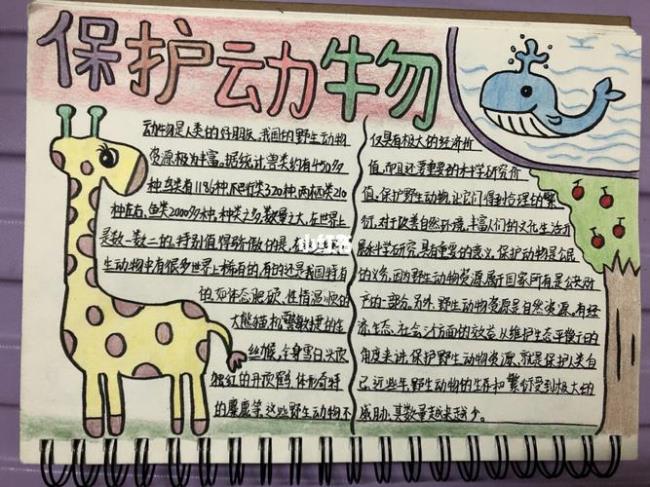 保护动物
动物是人类的好朋友,我国的野生动物
资源极为丰富。据统计,兽类约有450多
种,鸟类有1186种,爬行类320种,两栖类210
种左右,鱼类2000多种,种类之多,数量之大,在世界上
是数一数二的,特别值得骄傲的是,在
生动物中有很多世界上稀有的,有的还是我国特有
的,如体态肥硕、性情温顺的
大熊猫,机警敏捷的
丝猴,全身雪白,头顶
独红的丹顶鹤,体形奇特
的麋鹿等,这些野生动物不
仅具有极大的经济价
值,而且还重要的科学研究价
值,保护野生动物,让它们得到合理的繁
衍,对于改善自然环境,丰富人们的文化生活,开
展科学研究,具有重要的意义,保护动物是公民
的义务,因为野生动物资源属于国家所有是公共财
产的一部分,另外,野生动物资源是自然资源,有经
济、生态、社会三方面的效益,从维护生态平衡的
角度来讲,保护野生动物资源,就是保护人类自
己,近些年,野生动物的生存和繁衍受到极大的
威胁,其数量越来越少。
小红书